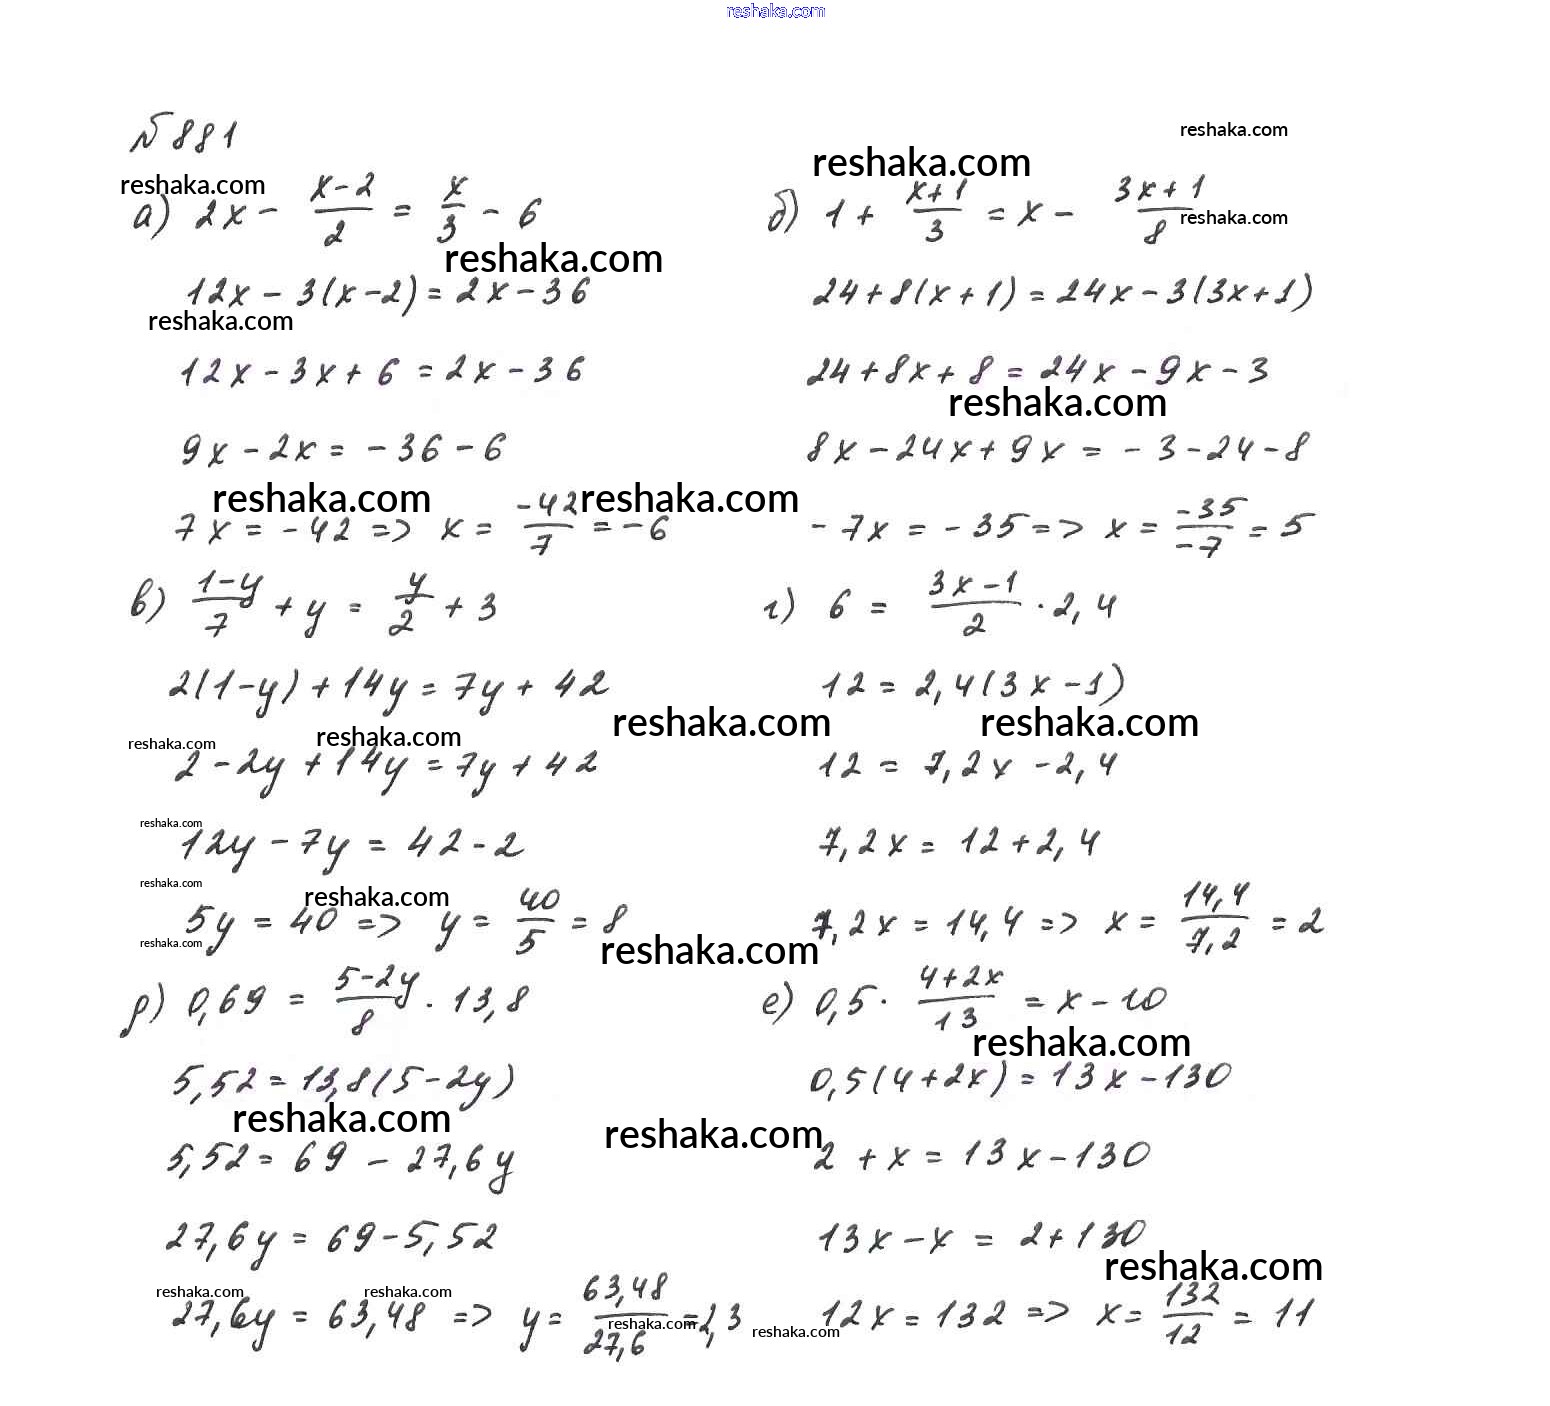 reshaka.com
№ 881
reshaka.com
reshaka.com
reshaka.com
а) 2x - (x-2)/2 = x/3 - 6
reshaka.com
reshaka.com
12x - 3(x-2) = 2x - 36
reshaka.com
12x - 3x + 6 = 2x - 36
9x - 2x = - 36 - 6
reshaka.com reshaka.com
7x = - 42 => x = -42/7 = - 6
б) 1 + (x+1)/3 = x - (3x+1)/8
24 + 8(x+1) = 24x - 3(3x+1)
24 + 8x + 8 = 24x - 9x - 3
reshaka.com
8x - 24x + 9x = - 3 - 24 - 8
- 7x = - 35 => x = -35/-7 = 5
в) (1-y)/7 + y = y/2 + 3
2(1-y) + 14y = 7y + 42
reshaka.com
reshaka.com reshaka.com
2 - 2y + 14y = 7y + 42
reshaka.com
12y - 7y = 42 - 2
reshaka.com
reshaka.com
5y = 40 => y = 40/5 = 8
reshaka.com
reshaka.com
г) 6 = (3x-1)/2 · 2,4
12 = 2,4(3x-1)
reshaka.com
12 = 7,2x - 2,4
7,2x = 12 + 2,4
7,2x = 14,4 => x = 14,4/7,2 = 2
д) 0,69 = (5-2y)/8 · 13,8
5,52 = 13,8(5-2y)
reshaka.com
reshaka.com
5,52 = 69 - 27,6y
27,6y = 69 - 5,52
reshaka.com reshaka.com
27,6y = 63,48 => y = 63,48/27,6 = 2,3
reshaka.com
reshaka.com
е) 0,5 · (4+2x)/13 = x - 10
reshaka.com
0,5(4+2x) = 13x - 130
2 + x = 13x - 130
13x - x = 2 + 130
reshaka.com
12x = 132 => x = 132/12 = 11